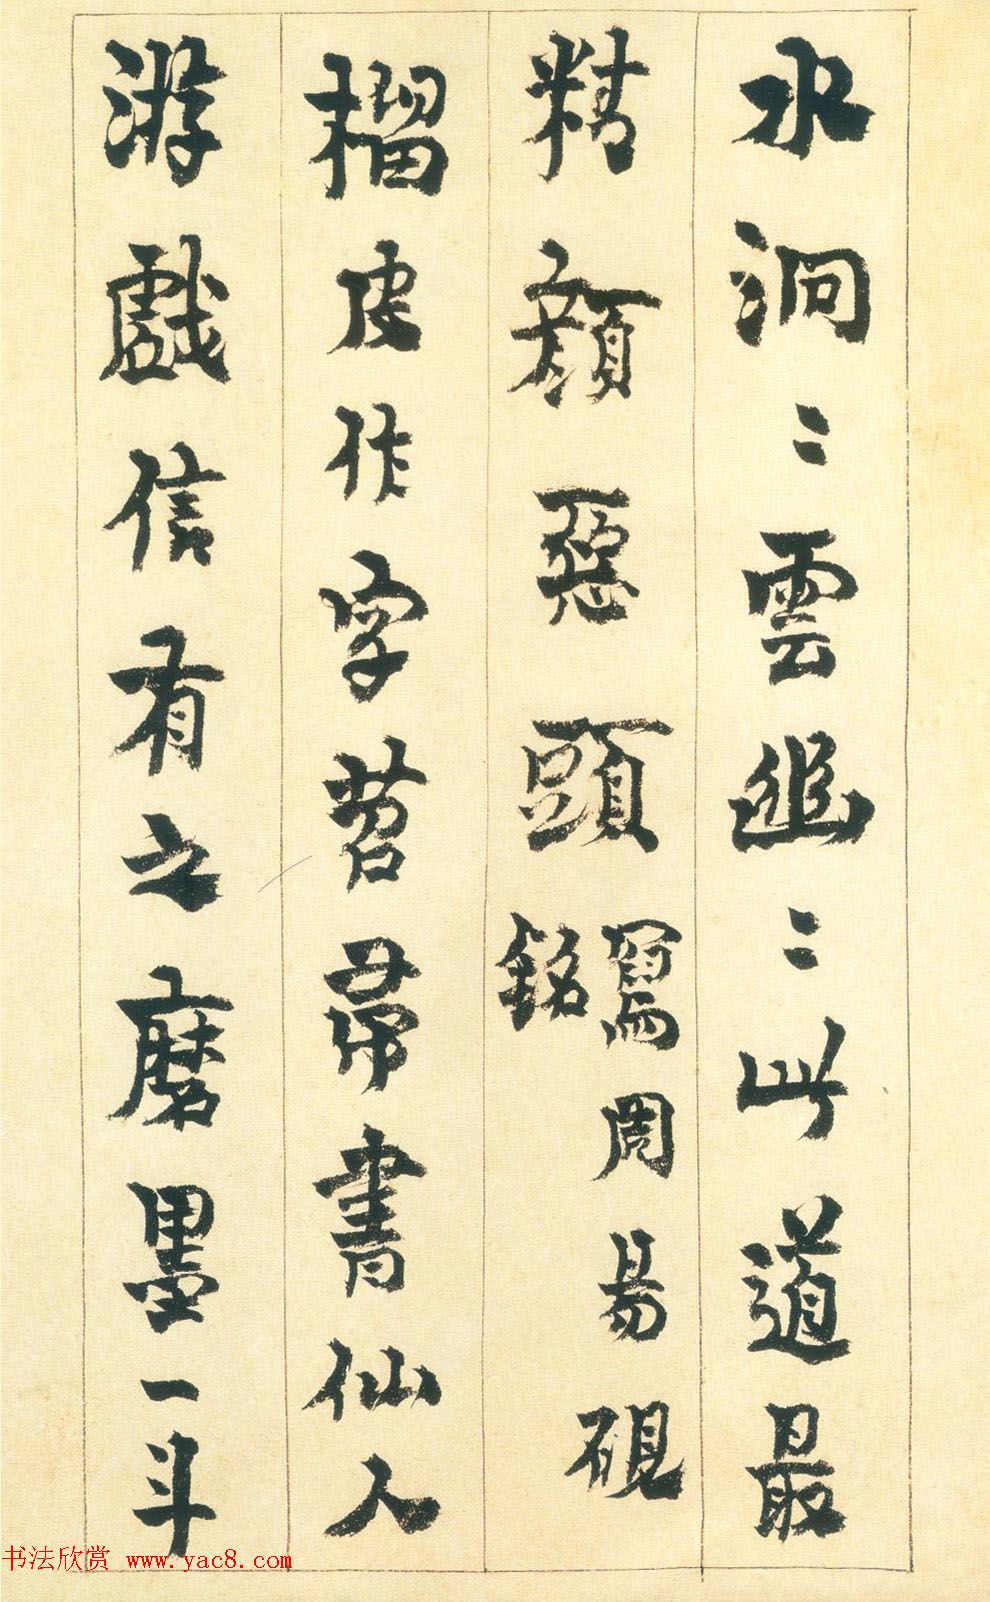 水洞〻雲幽〻此道最
精顏惡頭
寫周易硯
銘
榴皮作字苕帚書仙人
游戲信有之磨墨一斗
书法欣赏 www.yac8.com